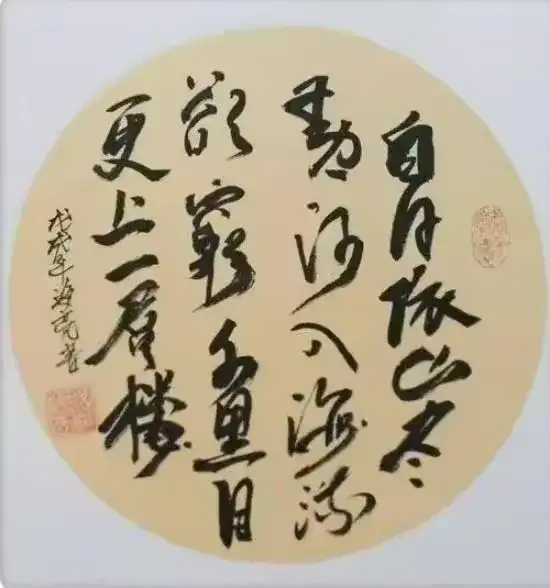 白日依山尽
黄河入海流
欲窮千里目
更上一层樓
戊戌年海亮书